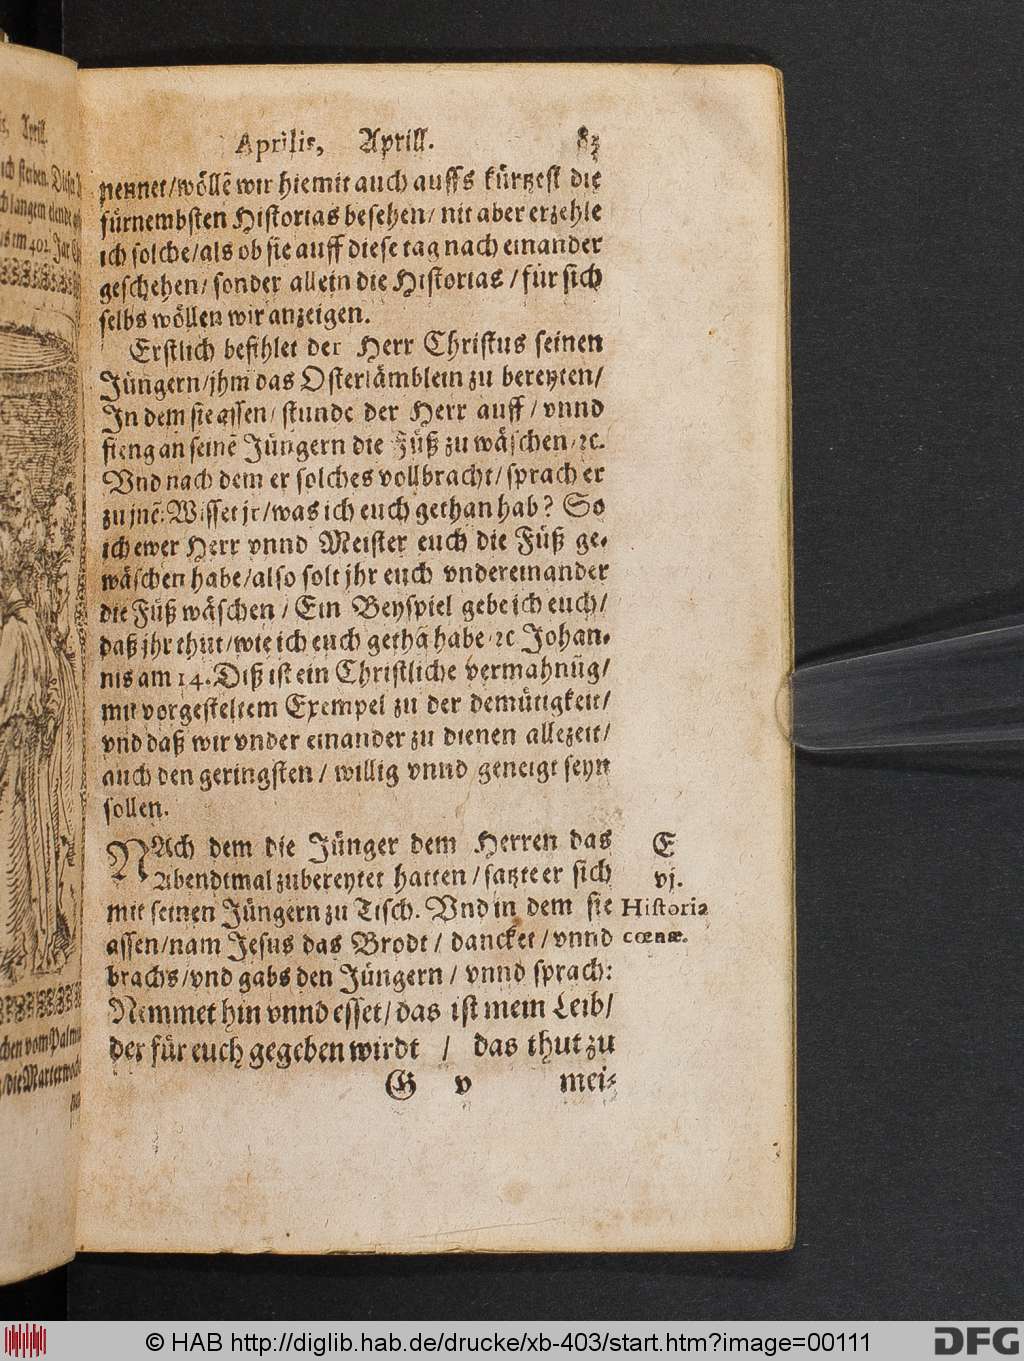 Aprilis, Aprill. 83
nennet/wöllē wir hiemit auch auffs kürtzest die
fürnembsten Historias besehen/ nit aber erzehle
ich solche/als ob sie auff diese tag nach einander
geschehen/ sonder allein die Historias /für sich
selbs wöllen wir anzeigen.
Erstlich befihlet der Herr Christus seinen
Jüngern/jhm das Osterlämblein zu bereyten/
In dem sie assen/ stunde der Herr auff/ vnnd
fieng an seinē Jüngern die Füß zu wäschen/ꝛc.
Vnd nach dem er solches vollbracht/sprach er
zu jnē: Wisset jr/was ich euch gethan hab? So
ich ewer Herr vnnd Meister euch die Füß ge-
wäschen habe/also solt jhr euch vndereinander
die Füß wäschen / Ein Beyspiel gebe ich euch/
daß jhr thut/wie ich euch gethā habe/ꝛc Johan-
nis am 14. Diß ist ein Christliche vermahnūg/
mit vorgesteltem Exempel zu der demütigkeit/
vnd daß wir vnder einander zu dienen allezeit/
auch den geringsten / willig vnnd geneigt seyn
sollen.
NAch dem die Jünger dem Herren das
Abendtmal zubereytet hatten / satzte er sich
mit seinen Jüngern zu Tisch. Vnd in dem sie
assen/nam Jesus das Brodt/ dancket/ vnnd
brachs/vnd gabs den Jüngern / vnnd sprach:
Nemmet hin vnnd esset/das ist mein Leib/
der für euch gegeben wirdt / das thut zu
G v mei-
E
vj.
Historia
cœnæ.
© HAB http://diglib.hab.de/drucke/xb-403/start.htm?image=00111
DFG